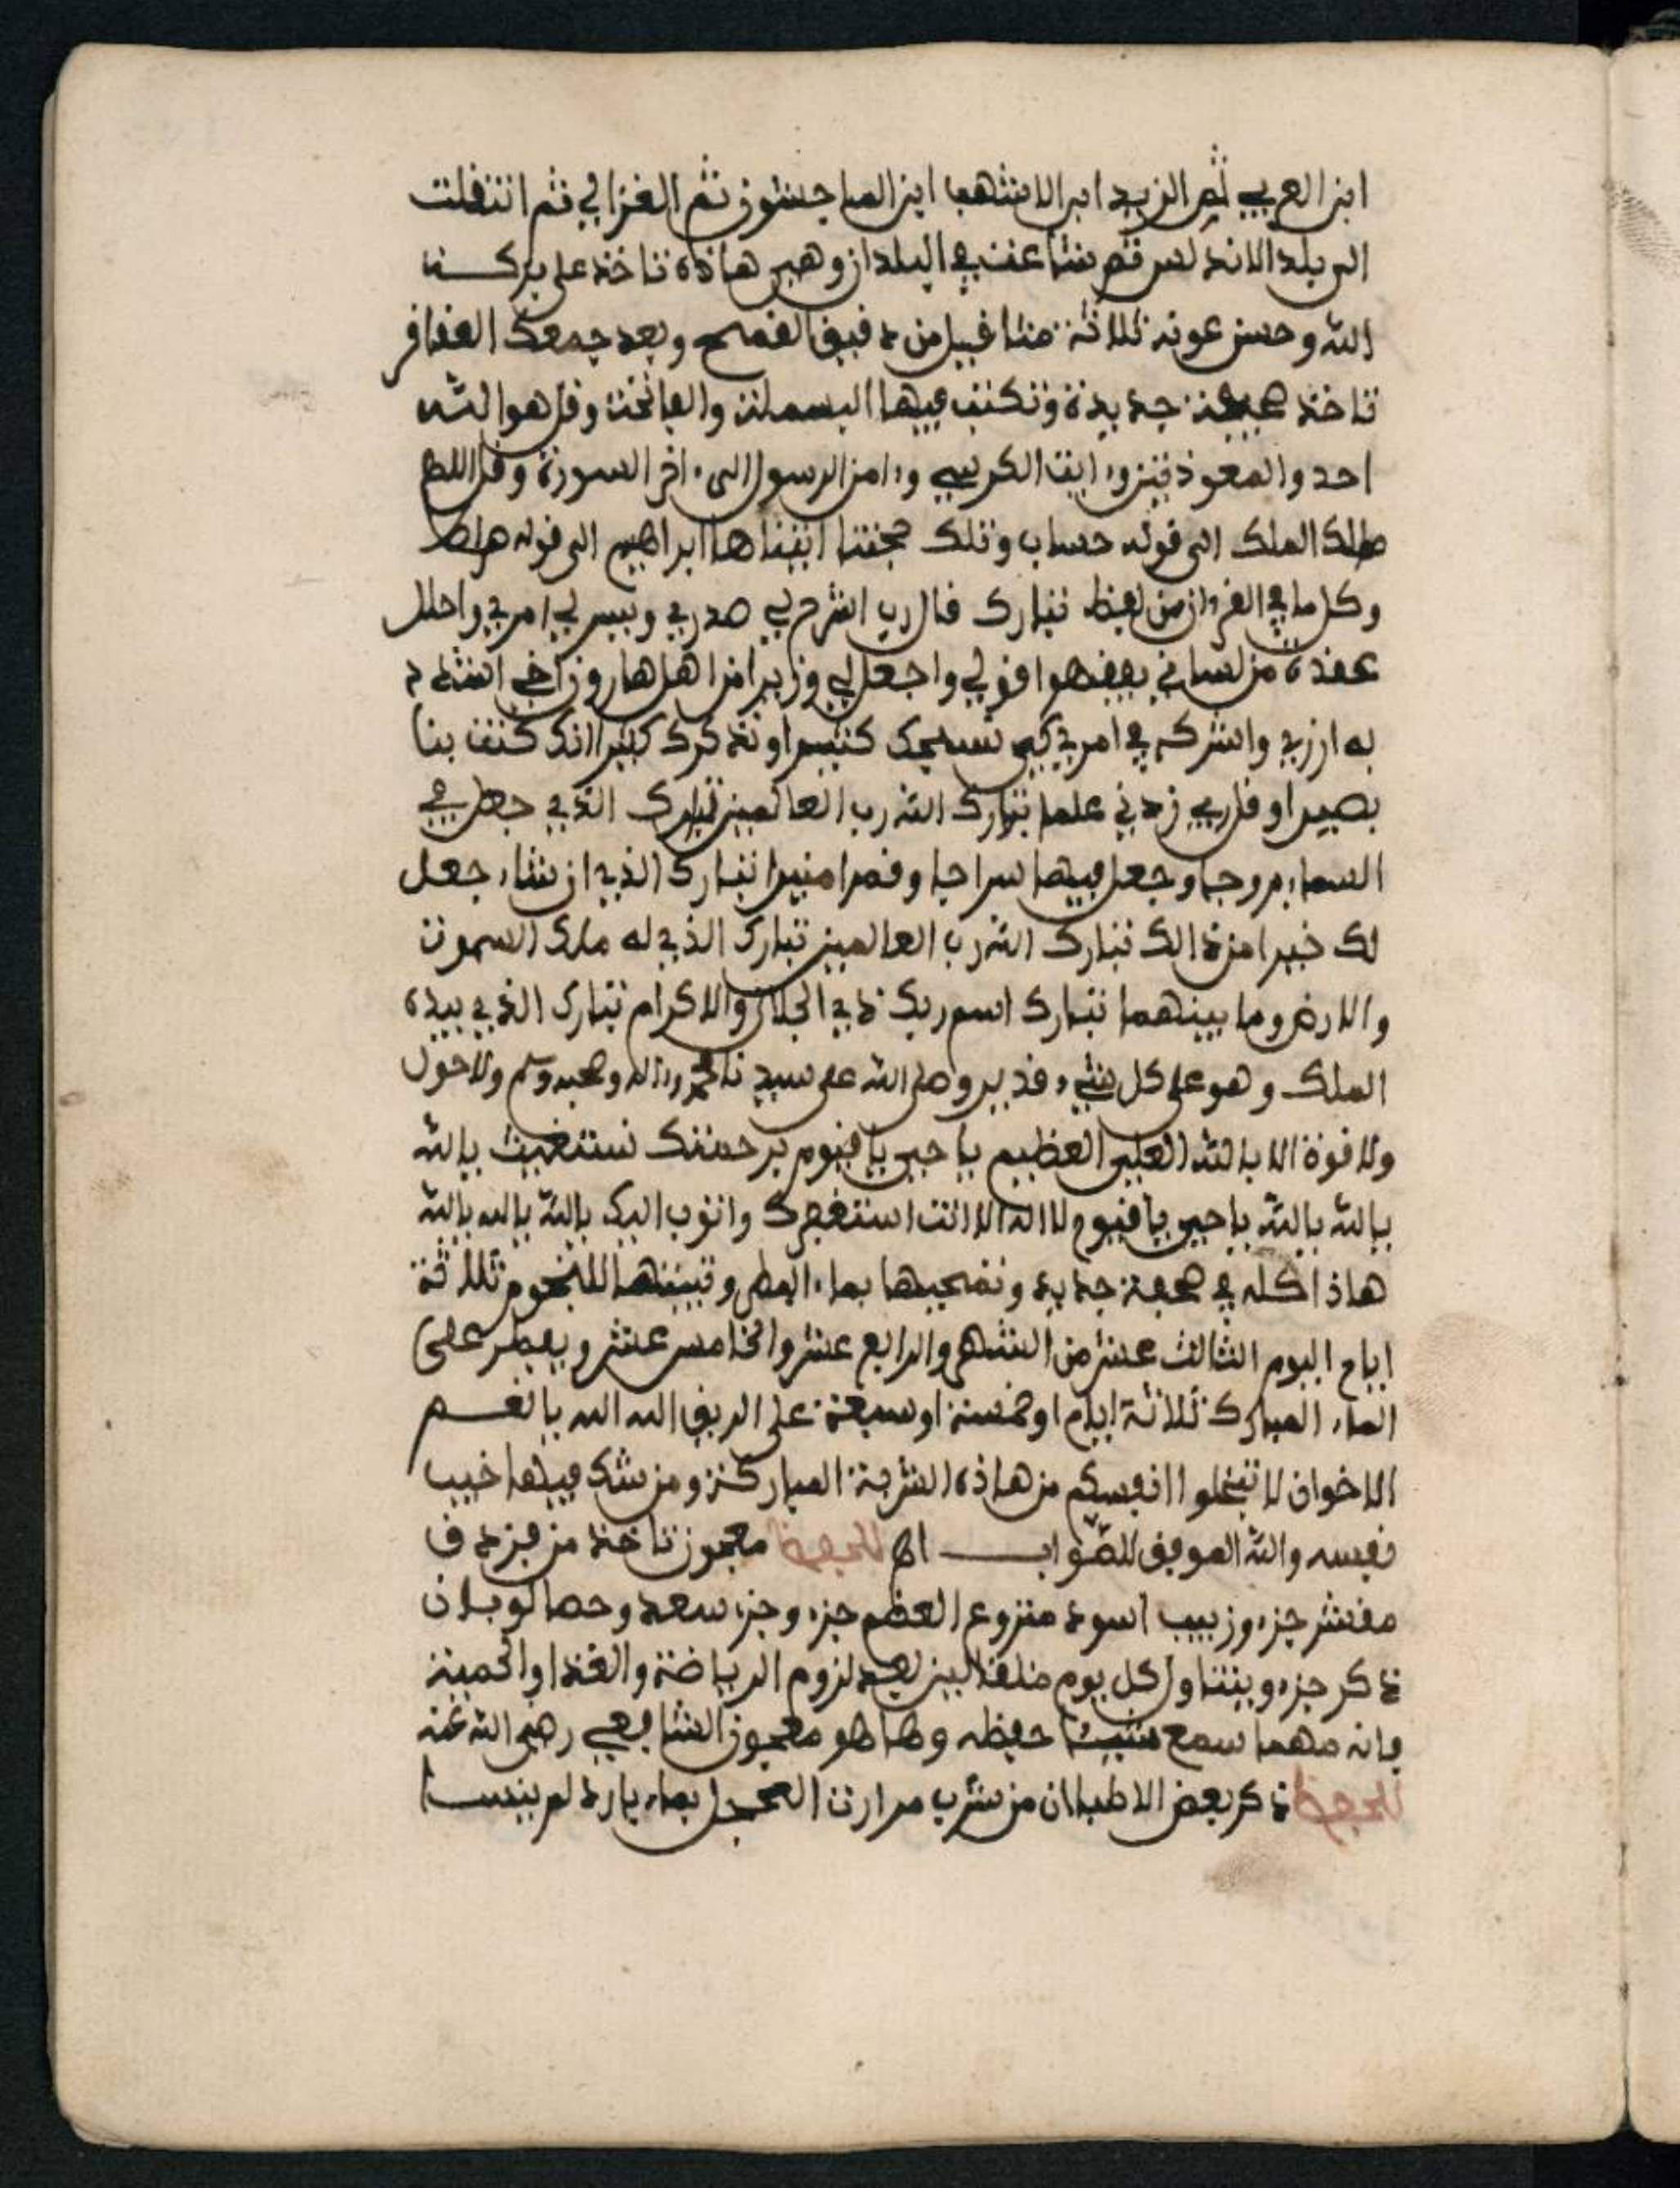 ابن العربي ثم الزبيد ابر الاشهب ابن الماجشون ثم الغزالي ثم انتقلت
الى بلد الاندلس ثم شاعت في البلدان وهي هاذه تاخذ على بركة
الله وحسن عونه ثلاثة مثاقيل من دقيق القمح وبعد جمعك العقاقر
تاخذ صحيفة جديدة وتكتب فيها البسملة والفاتحة وقل هو الله
احد والمعوذتين وءاية الكرسي وءامن الرسول الى ءاخر السورة وقل اللهم
ملك الملك الى قوله حساب وتلك حجتنا اتيناها ابراهيم الى قوله صراط
وكل ما في القرءان من لفظ تبارك قال رب اشرح لي صدري ويسر لي امري واحلل
عقدة من لساني يفقهوا قولي واجعل لي وزيرا من اهلي هارون اخي اشدد
به ازري واشركه في امري كي نسبحك كثيرا ونذكرك كثيرا انك كنت بنا
بصيرا وقل رب زدني علما تبارك الله رب العالمين تبارك الذي جعل في
السماء بروجا وجعل فيها سراجا وقمرا منيرا تبارك الذي ان شاء جعل
لك خيرا من ذالك تبارك الله رب العالمين تبارك الذي له ملك السموت
والارض وما بينهما تبارك اسم ربك ذي الجلال والاكرام تبارك الذي بيده
الملك وهو على كل شيء قدير وصلى الله على سيدنا محمد وءاله وصحبه وسلم ولا حول
ولا قوة الا بالله العلي العظيم يا حي يا قيوم برحمتك نستغيث بالله
بالله بالله يا حي يا قيوم لا اله الا انت استغفرك واتوب اليك بالله بالله بالله
هاذا كله في صحفة جديدة وتمحيها بماء المطر وتبيتها للنجوم ثلاثة
ايام اليوم الثالث عشر من الشهر والرابع عشر والخامس عشر ويفطر على
الماء المبارك ثلاثة ايام او خمسة او سبعة على الريق الله الله يا نعم
الاخوان لا تبخلوا انفسكم من هاذه الشربة المباركة ومن شك فيها خيب
نفسه والله الموفق للصواب اه للحفظ معجون تاخذ من فزدق
مقشر جزء وزبيب اسود منزوع العظم جزء وجزء سعد وحصا لوبان
ذكر جزء ويتناول كل يوم مثقالين بعد لزوم الرياضة والغذا والحمية
فانه مهما سمع شيئا حفظه وهاهو معجون الشافعي رضي الله عنه
للحفظ ذكر بعض الاطبا ان من شرب مرارت العجل بماء بارد لم ينسا